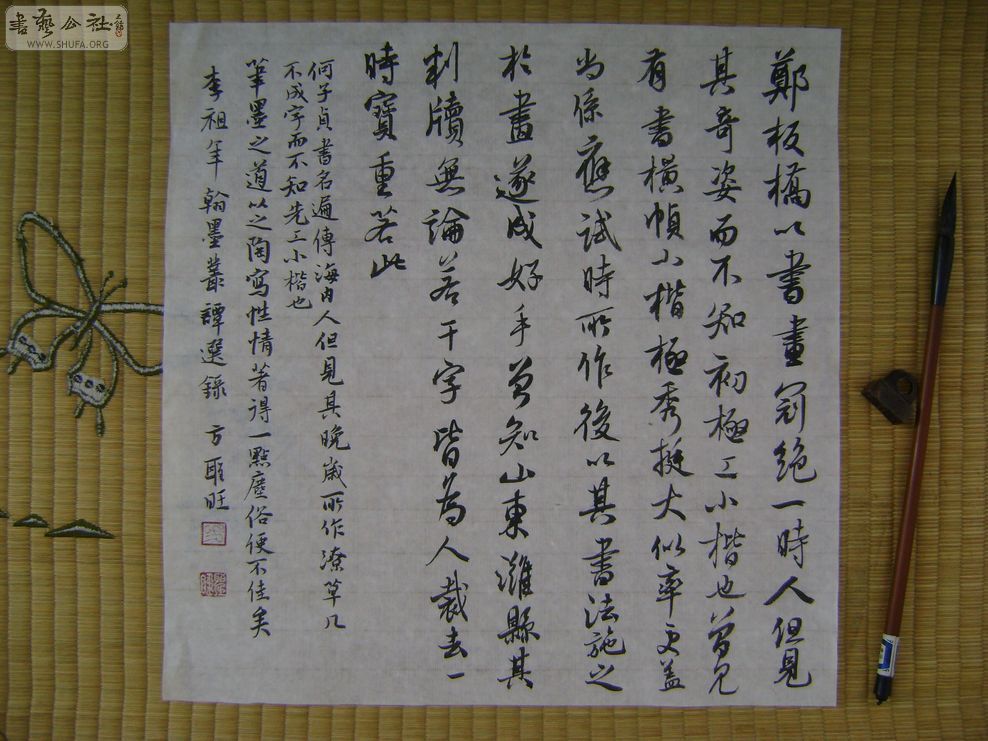 鄭板橋以書畫冠絕一時人但見
其奇姿而不知初極工小楷也曾見
有書橫幀小楷極秀挺大似率更蓋
尚係應試時所作後以其書法施之
於畫遂成好手曾知山東濰縣其
判牘無論若干字皆為人裁去一
時寶重若此
何子貞書名遍傳海内人但見其晚歲所作潦草几
不成字而不知先工小楷也
筆墨之道以之陶寫性情著得一點塵俗便不佳矣
李祖年翰墨叢譚選錄 方 旺
書藝公社
WWW.SHUFA.ORG